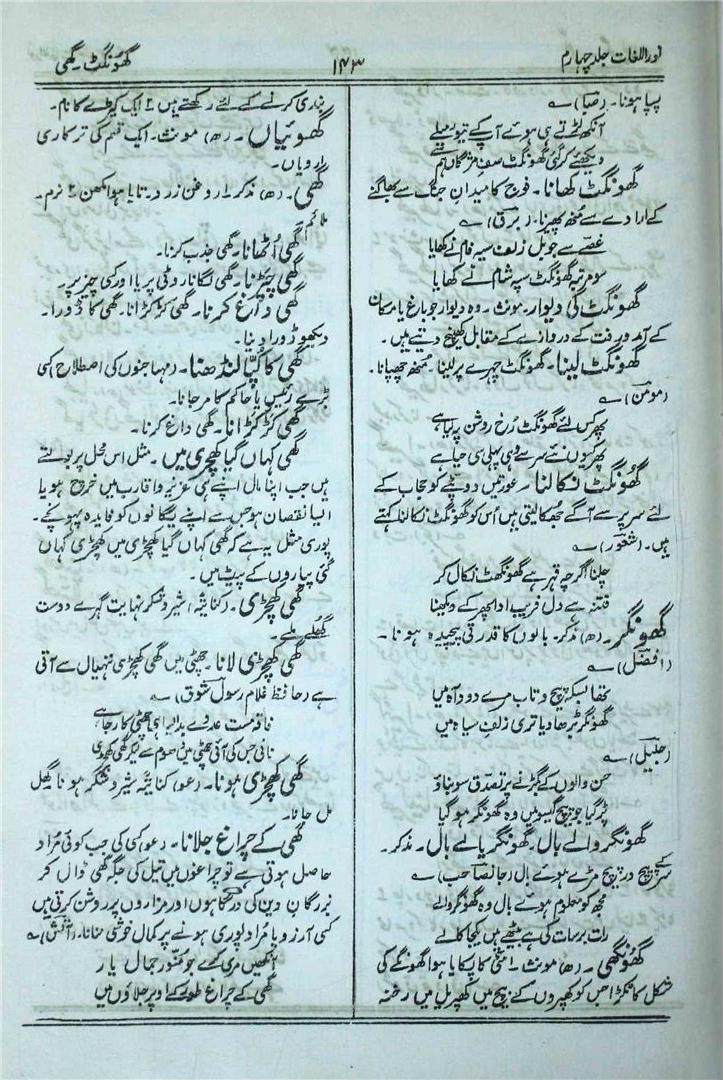 نور اللغات جلد چہارم
۱۴۳
گھونگٹ۔ گھی
پسپا ہونا۔ (صبا) ؎
آنکھ لڑتے ہی ہوئے آپ کے تیور میلے
دیکھئے کر گئی گھونگٹ صفِ مژگاں ہم سے
گھونگٹ کھانا۔ فوج کا میدانِ جنگ سے بھاگنے
کے ارادے سے منھ پھیرنا۔ (برق) ؎
غصے سے جو بل زلف سیہ فام نے کھایا
سو مرتبہ گھونگٹ سپہ شام نے کھایا
گھونگٹ کی دیوار۔ مونث۔ وہ دیوار جو باغ یا مکان
کے آمد و رفت کے دروازے کے مقابل کھینچ دیتے ہیں۔
گھونگٹ لینا۔ گھونگٹ چہرے پر لینا۔ منھ چھپانا۔
(مومن) ؎
پھر کس لئے گھونگٹ رُخ روشن پہ لیا ہے
پھر کیوں نئے سر سے وہی پہلی سی حیا ہے
گھونگٹ نکالنا۔ عورتیں دوپٹے کو حجاب کے
لئے سر پر سے آگے جُھکا لیتی ہیں اُس کو گھونگٹ نکالنا کہتے
ہیں۔ (شعور) ؎
چلنا اگرچہ قہر ہے گھونگھٹ نکال کر
فتنہ ہے دل فریب ادا پھر کے دیکھنا
گھونگر۔ (ھ) مذکر۔ بالوں کا قدرتی پیچیدہ ہونا۔
(افضل) ؎
تھا بسکہ پیچ و تاب مرے دودِ آہ میں
گھونگر بڑھا دیا تری زلفِ سیاہ میں
(جلیل) ؎
حسن والوں کے بگڑنے پر تصدق سو بناؤ
پڑ گیا جو پیچ گیسو میں وہ گھونگر ہو گیا
گھونگر والے بال۔ گھونگریالے بال۔ مذکر۔
سر کے پیچ در پیچ مڑے ہوئے بال (جانصاحب) ؎
مجھ کو معلوم ہوئے بال وہ گھونگر والے
رات برسات کی ہے بیٹھے ہیں کیجا کالے
گھونگھی۔ (ھ) مونث۔ ۱ مٹی کا پکایا ہوا گھونگے کی
شکل کا ٹکڑا جس کو کھپروں کے بیچ میں کھپریل میں رخنہ
بندی کرنے کے لئے رکھتے ہیں ۲ ایک کپڑے کا نام۔
گھوئیاں۔ (ھ) مونث۔ ایک قسم کی ترکاری
اروپاں۔
گھی۔ (ھ) مذکر۔ ۱ روغن زرد۔ تایا ہوا مکھن ۲ نرم۔
ملائم۔
گھی اُٹھانا۔ گھی جذب کرنا۔
گھی چپڑنا۔ گھی لگانا روٹی پر یا اور کسی چیز پر۔
گھی داغ کرنا۔ گھی کڑکڑانا۔ گھی کا ڈورا۔
دیکھو ڈورا دینا۔
گھی کا کپا لنڈھنا۔ (مہاجنوں کی اصطلاح) کسی
بڑے رئیس یا حاکم کا مر جانا۔
گھی کڑکڑانا۔ گھی داغ کرنا۔
گھی کہاں گیا کھچڑی میں۔ مثل اس محل پر بولتے
ہیں جب اپنا مال اپنے ہی عزیز و اقارب میں خرچ ہو یا
ایسا نقصان ہو جس سے اپنے یگانوں کو فایدہ پہونچے۔
پوری مثل یہ ہے کہ گھی کہاں گیا کھچڑی میں کھچڑی کہاں
گئی پیاروں کے پیٹ میں۔
گھی کھچڑی۔ (کنایۃً) شیر و شکر نہایت گہرے دوست
گُھلے ملے۔
گھی کھچڑی لانا۔ چھٹی میں گھی کھچڑی ننہیال سے آتی
ہے (حافظ غلام رسول شوق) ؎
چھٹی کا رچا ہے
نانی جس کی آئی چھٹی میں دھوم سے لیکر گھی کھچڑی
گھی کھچڑی ہونا۔ (عو) کنایۃً شیر و شکر ہونا گھل
مل جانا۔
گھی کے چراغ جلانا۔ (عو) کسی کی جب کوئی مُراد
حاصل ہوتی ہے تو چراغوں میں تیل کی جگہ گھی ڈال کر
بزرگان دین کی درگاہوں اور مزاروں پر روشن کرتی ہیں
کسی آرزو یا مراد پوری ہونے پر کمال خوشی منانا۔ (آتش) ؎
آنکھیں مری کرے جو منور جمال یار
گھی کے چراغ طور کے اوپر جلاؤں میں